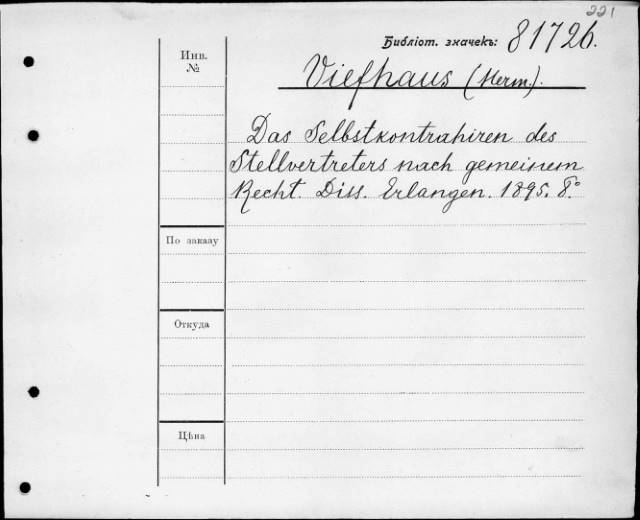 221
Библіот. значекъ: 81726.
Инв.
№
Viefhaus (Herm.).
Das Selbstkontrahiren des
Stellvertreters nach gemeinem
Recht. Diss. Erlangen. 1895. 8°.
По заказу
Откуда
Цѣна